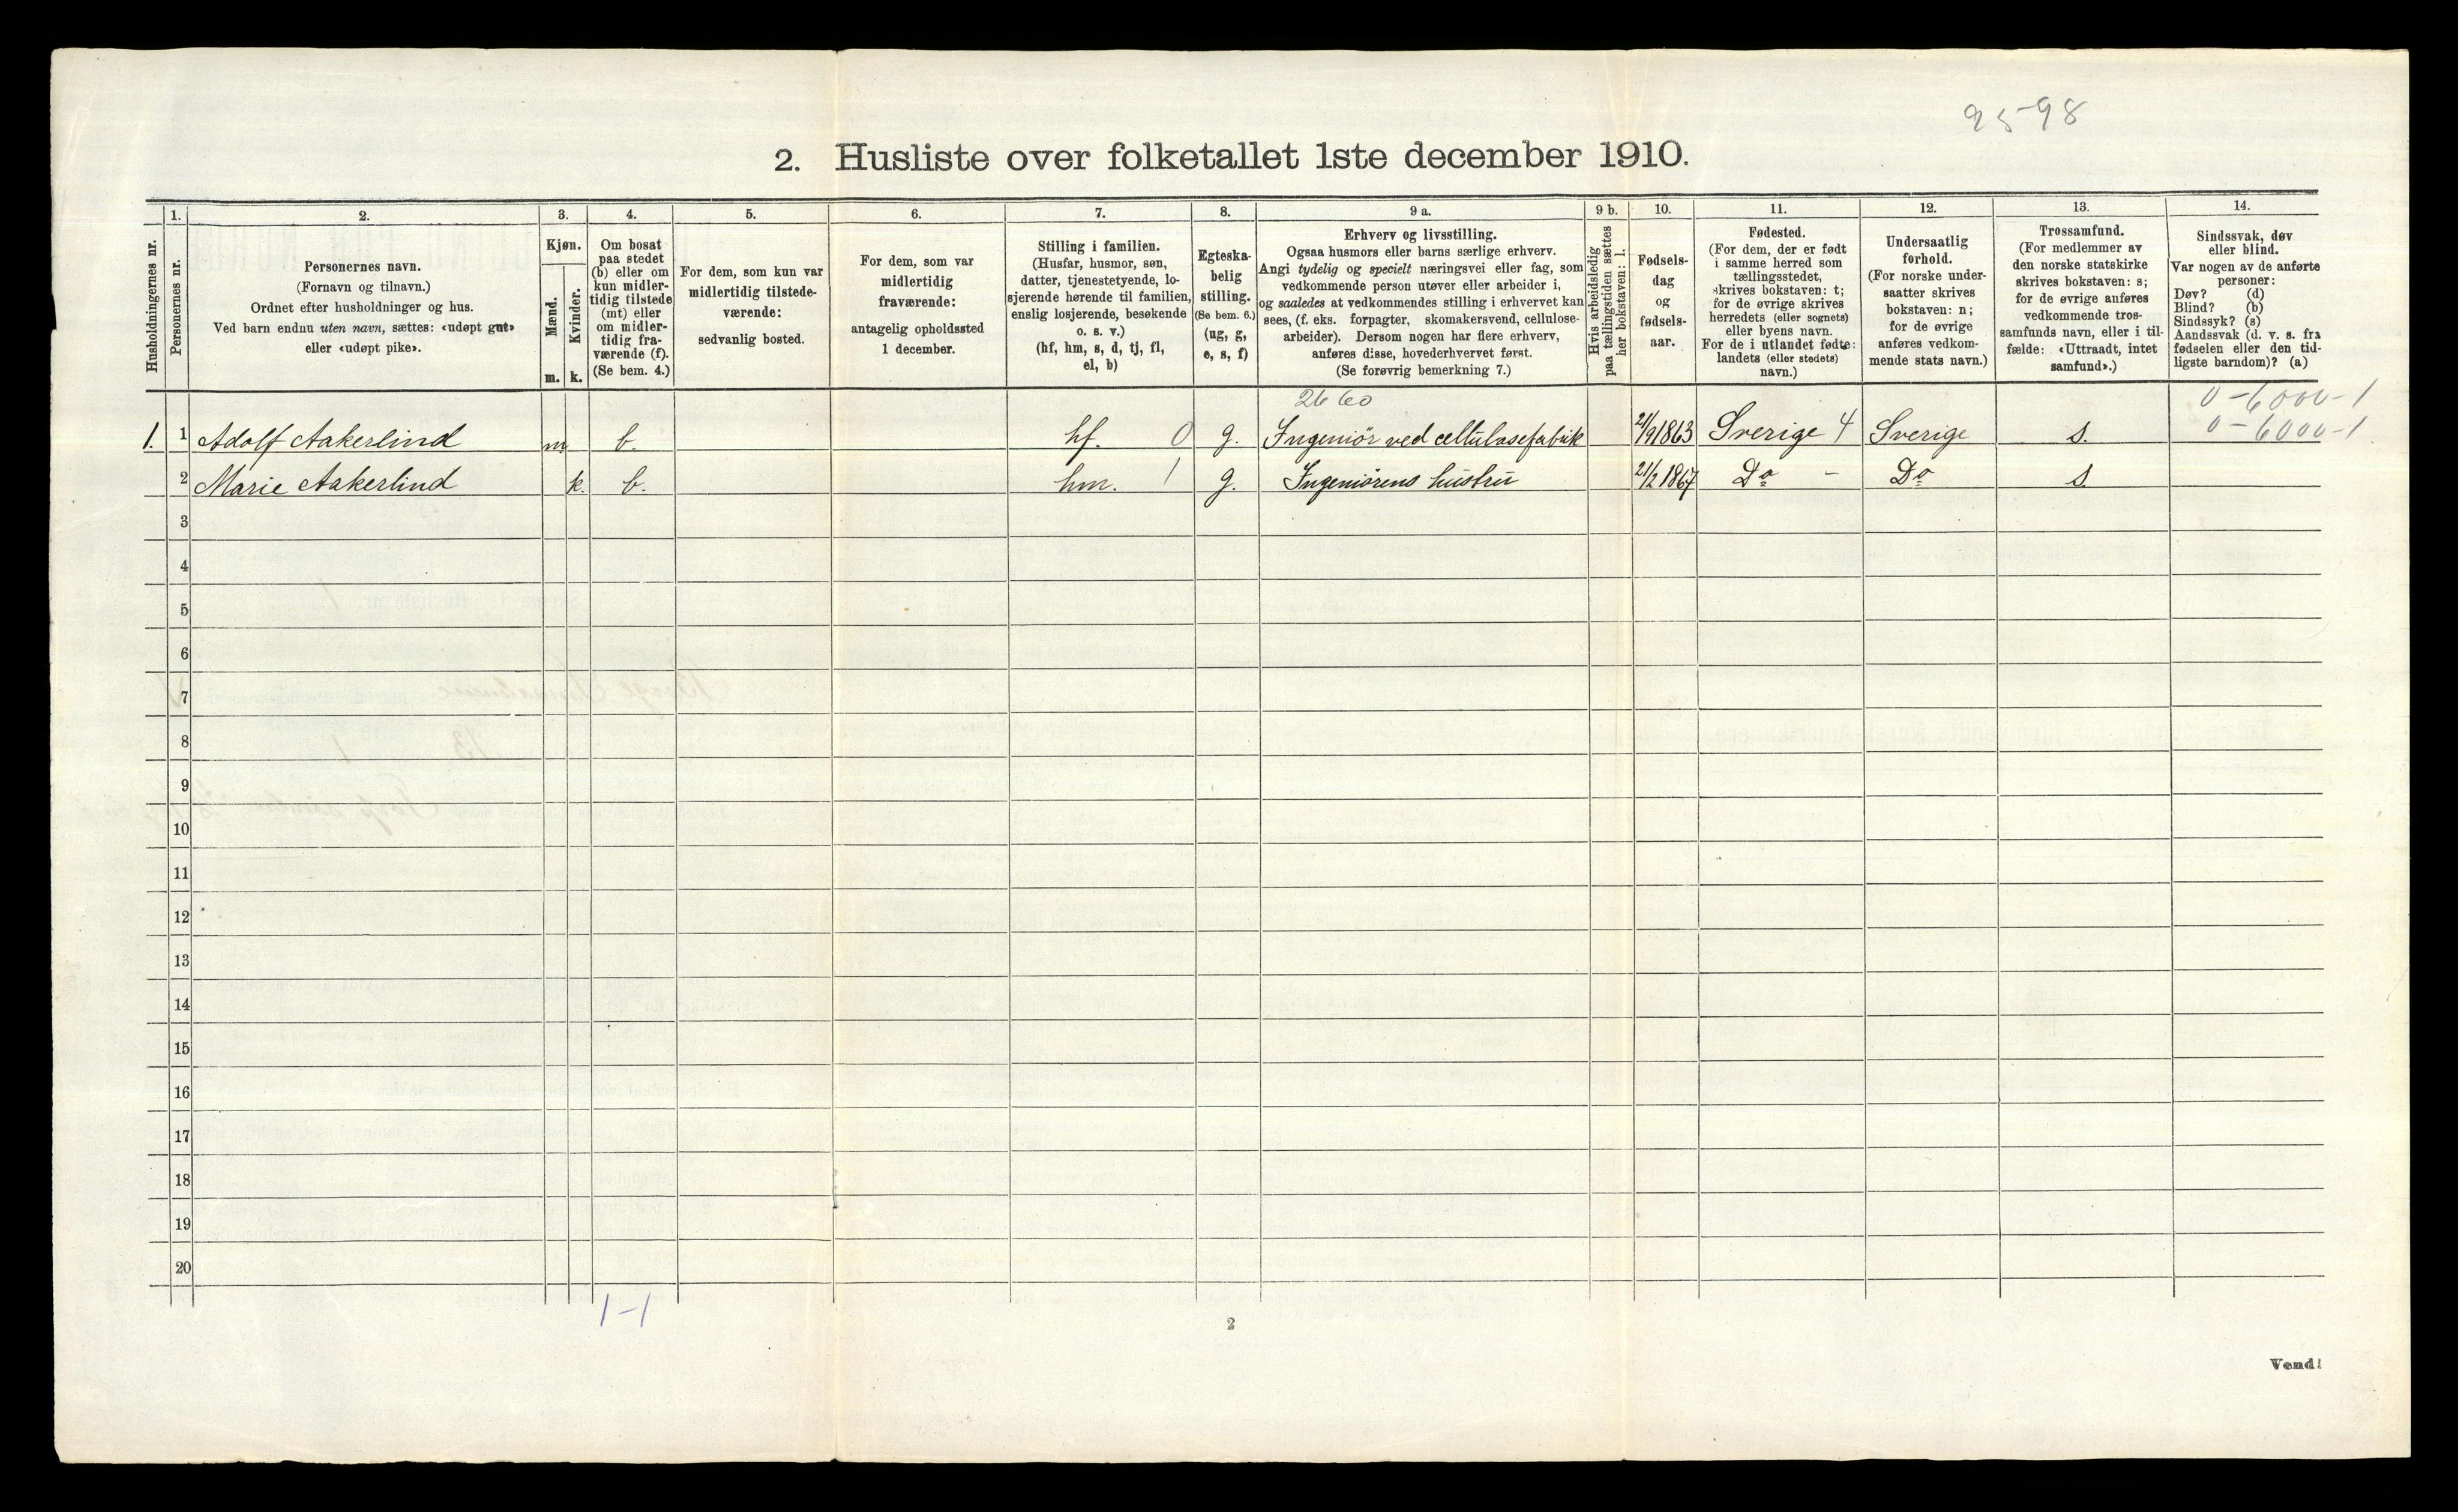 95-98
2. Husliste over folketallet 1ste december 1910.
Husholdningernes nr.
1.
Personernes nr.
2.
Personernes navn.
(Fornavn og tilnavn.)
Ordnet efter husholdninger og hus.
Ved barn endnu uten navn, sættes: «udøpt gut»
eller «udøpt pike».
3.
Kjøn.
Mænd.
m.
Kvinder.
k.
4.
Om bosat
paa stedet
(b) eller om
kun midler-
tidig tilstede
(mt) eller
om midler-
tidig fra-
værende (f).
(Se bem. 4.)
5.
For dem, som kun var
midlertidig tilstede-
værende:
sedvanlig bosted.
6.
For dem, som var
midlertidig
fraværende:
antagelig opholdssted
1 december.
7.
Stilling i familien.
(Husfar, husmor, søn,
datter, tjenestetyende, lo-
sjerende hørende til familien,
enslig losjerende, besøkende
o. s. v.)
(hf, hm, s, d, tj, fl,
el, b)
8.
Egteska-
belig
stilling.
(Se bem. 6.)
(ug, g,
e, s, f)
9 a.
Erhverv og livsstilling.
Ogsaa husmors eller barns særlige erhverv.
Angi tydelig og specielt næringsvei eller fag, som
vedkommende person utøver eller arbeider i,
og saaledes at vedkommendes stilling i erhvervet kan
sees, (f. eks. forpagter, skomakersvend, cellulose-
arbeider). Dersom nogen har flere erhverv,
anføres disse, hovederhvervet først.
(Se forøvrig bemerkning 7.)
9 b.
Hvis arbeidsledig
paa tællingstiden sættes
her bokstaven: l.
10.
Fødsels-
dag
og
fødsels-
aar.
11.
Fødested.
(For dem, der er født
i samme herred som
tællingsstedet,
skrives bokstaven: t;
for de øvrige skrives
herredets (eller sognets)
eller byens navn.
For de i utlandet fødte:
landets (eller stedets)
navn.)
12.
Undersaatlig
forhold.
(For norske under-
saatter skrives
bokstaven: n;
for de øvrige
anføres vedkom-
mende stats navn.)
13.
Trossamfund.
(For medlemmer av
den norske statskirke
skrives bokstaven: s;
for de øvrige anføres
vedkommende tros-
samfunds navn, eller i til-
fælde: «Uttraadt, intet
samfund».)
14.
Sindssvak, døv
eller blind.
Var nogen av de anførte
personer:
Døv? (d)
Blind? (b)
Sindssyk? (s)
Aandssvak (d. v. s. fra
fødselen eller den tid-
ligste barndom)? (a)
2660 0-6000-1
1. 1 Adolf Aakerlind m b. hf. 0 g. Ingeniør ved cellulosefabrik 21/9 1863 Sverige 4 Sverige s. 0-6000-1
2 Marie Aakerlind k. b. hm. 1 g. Ingeniørens hustru 21/2 1867 Do - Do s.
3
4
5
6
7
8
9
10
11
12
13
14
15
16
17
18
19
20
1-1
2
Vend!